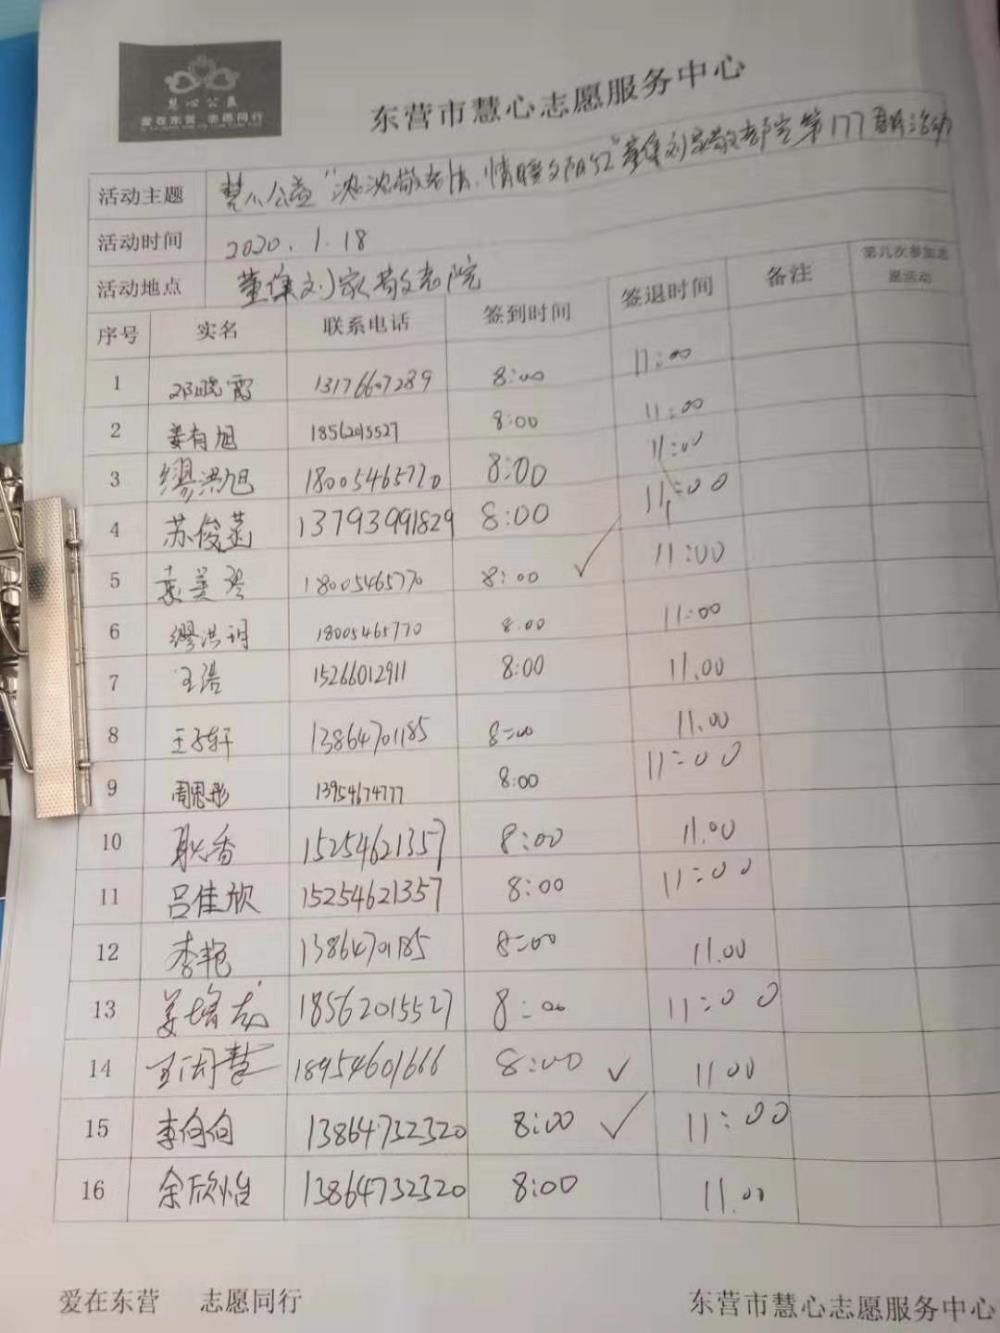 慧心公益
爱在东营 志愿同行
东营市慧心志愿服务中心
活动主题 慧心公益"浓浓敬老情、情暖夕阳红"董集刘家敬老院第177期活动
活动时间 2020.1.18
活动地点 董集刘家敬老院
序号 实名 联系电话 签到时间 签退时间 备注 第几次参加志愿活动
1 邓晓霞 13176607289 8:00 11:00
2 姜有旭 18562015527 8:00 11:00
3 缪洪旭 18005465770 8:00 11:00
4 苏俊 13793991829 8:00 11:00
5 袁美琴 18005465770 8:00 ✓ 11:00
6 缪洪 18005465770 8:00 11:00
7 王浩 15266012911 8:00 11.00
8 王子轩 13864701185 8:00 11.00
9 周思彤 13954674777 8:00 11:00
10 耿香 15254621357 8:00 11.00
11 吕佳欣 15254621357 8:00 11:00
12 李艳 13864701185 8:00 11.00
13 姜增龙 18562015527 8:00 11:00
14 慧 18954601666 8:00 ✓ 11 00
15 李向向 13864732320 8:00 ✓ 11:00
16 余欣怡 13864732320 8:00 11.00
爱在东营 志愿同行 东营市慧心志愿服务中心